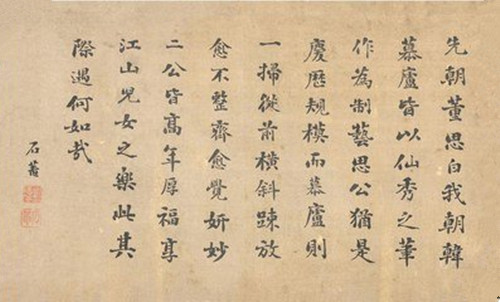 先朝董思白我朝韓
慕廬皆以仙秀之筆
作為制藝思公猶是
慶歷規模而慕廬則
一掃從前橫斜踈放
愈不整齊愈覺妍妙
二公皆髙年厚福享
江山兒女之樂此其
際遇何如哉
石菴